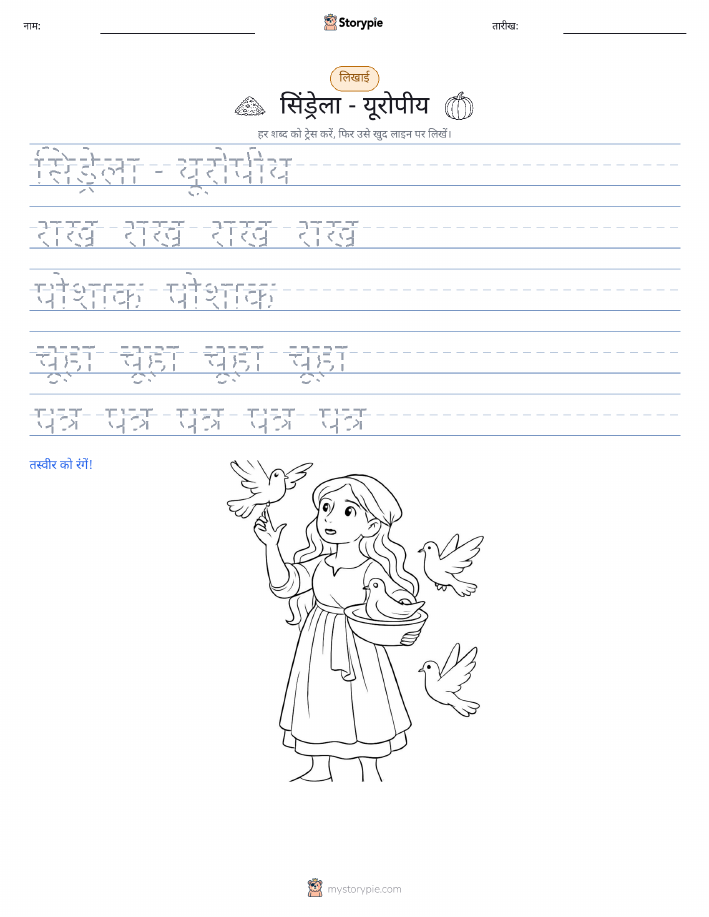 नाम:
Storypie
तारीख:
लिखाई
सिंड्रेला - यूरोपीय
हर शब्द को ट्रेस करें, फिर उसे खुद लाइन पर लिखें।
सिंड्रेला - यूरोपीय
राख राख राख राख
पोशाक पोशाक
चूहा चूहा चूहा चूहा
पत्र पत्र पत्र पत्र पत्र
तस्वीर को रंगें!
mystorypie.com